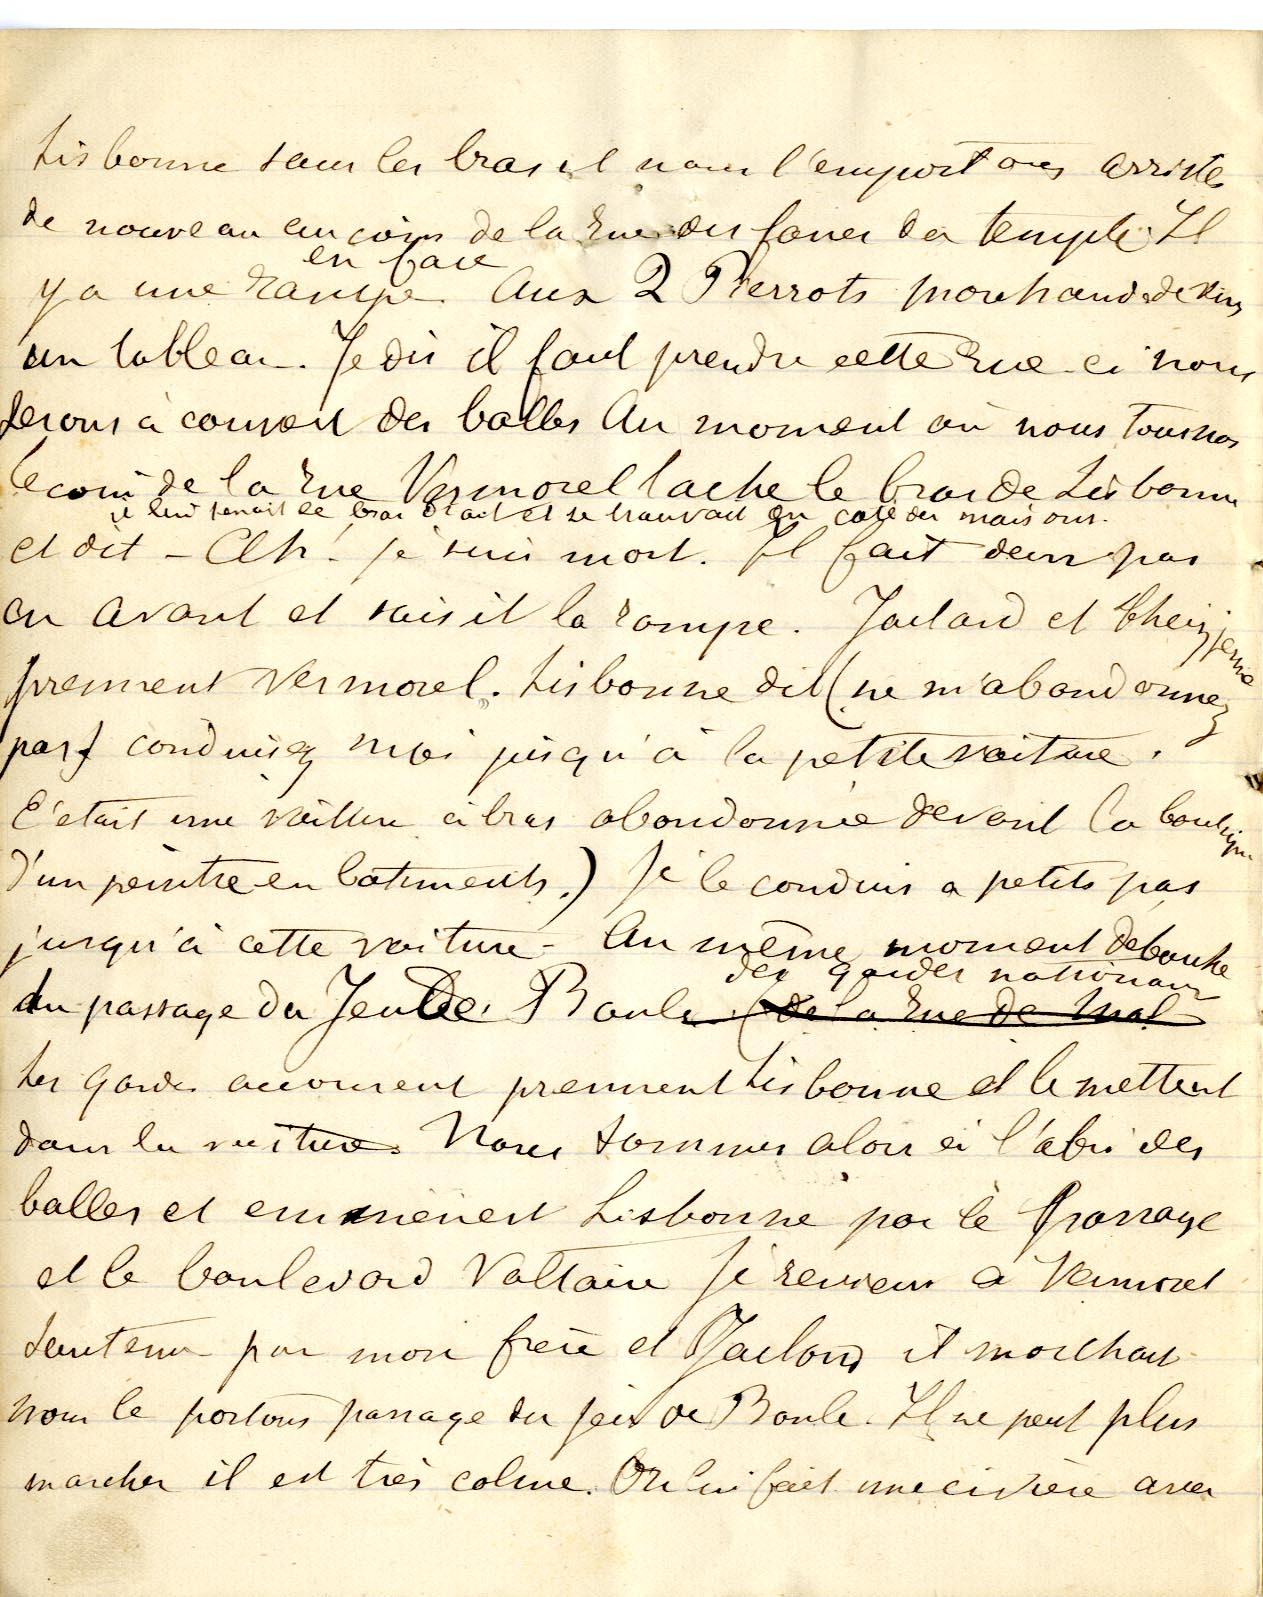 Lisbonne sous les bras et nous l'emportons arrivés
de nouveau au coin de la rue des fossés du temple. Il
en face
y a une rampe. Aux 2 Pierrots marchand de vins
un tableau. Je dis il faut prendre cette rue-ci nous
serons à couvert des balles Au moment où nous tournons
le coin de la rue Vermorel lache le bras de Lisbonne
il lui tenait le bras droit et se trouvait du coté des maisons.
et dit – Ah! je suis mort. Il fait deux pas
en avant et saisit la rampe. Jaclard et Theisz jeune
prennent Vermorel. Lisbonne dit (ne m'abandonnez
pas) conduisez moi jusqu'à la petite voiture.
C'était une voiture à bras abandonnée devant la boutique
d'un peintre en batiments.) Je le conduis a petits pas
jusqu'à cette voiture – Au même moment débouche
des gardes nationaux
du passage du Jeu de Boule (de la rue de Mal
Les gardes accourent prennent Lisbonne et le mettent
dans la voiture. Nous sommes alors à l'abri des
balles et emmènent Lisbonne par le passage
et le boulevard Voltaire Je reviens à Vermorel
soutenu par mon frère et Jaclard il marchait
nous le portons passage du jeu de Boule. Il ne peut plus
marcher il est très calme. On lui fait une civière avec